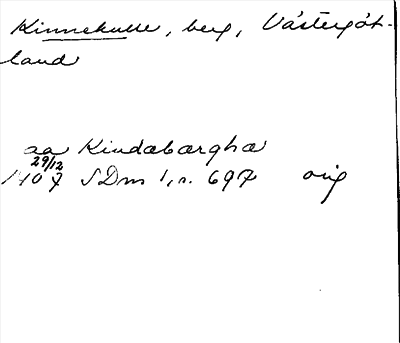 Kinnekulle, berg, Västergöt-
land
aa Kindabærghæ
29/12
1407 SDns 1, s. 697 orig